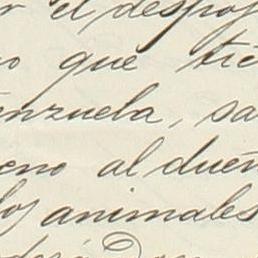 el despoj
que tie
enzuela, sa
eno al dueñ
los animales